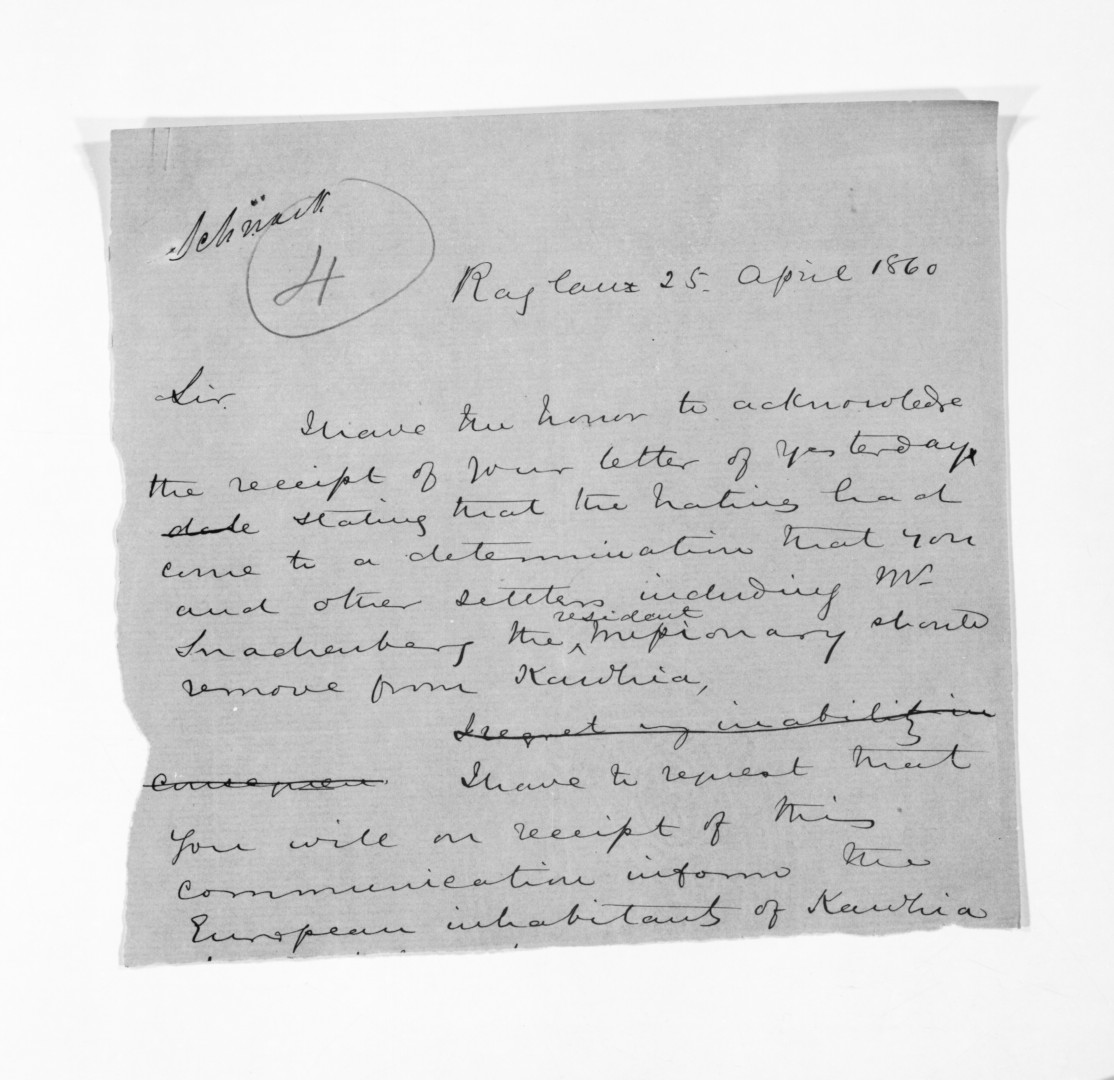 Schnack
4
Raglan 25. April 1860
Sir.
I have the honor to acknowledge
the receipt of your letter of yesterdays
date stating that the natives had
come to a determination that you
and other settlers including Mr
Snachenberg the resident Missionary should
remove from Kawhia,
I regret my inability in
consequen I have to request that
you will on receipt of this
communication inform the
European inhabitants of Kawhia